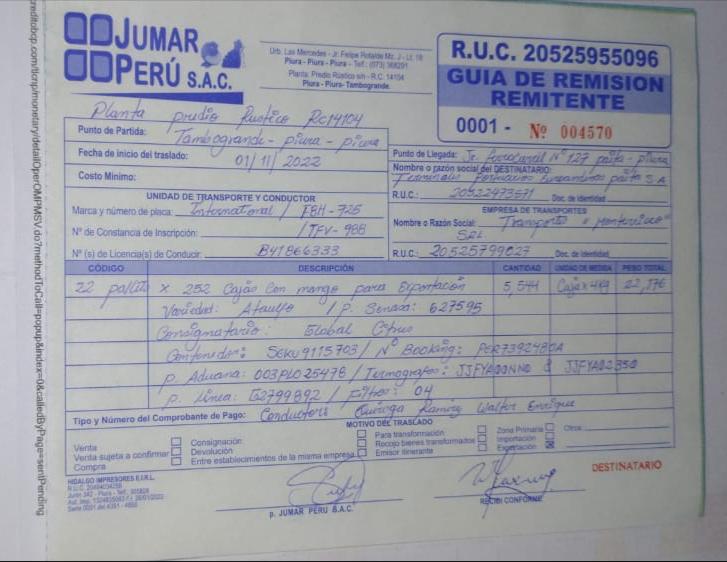 JUMAR PERÚ S.A.C.
Urb. Las Mercedes - Jr. Felipe Rotalde Mz. J - Lt. 18
Piura - Piura - Piura - Telf.: (073) 368291
Planta: Predio Rústico s/n - R.C. 14104
Piura - Piura - Tambogrande.
R.U.C. 20525955096
GUIA DE REMISION
REMITENTE
0001 - Nº 004570
Planta predio Rustico Rc14104
Punto de Partida: Tambogrande - piura - piura
Fecha de inicio del traslado: 01/11/2022
Costo Mínimo:
Punto de Llegada: Jr. ferrocarril Nº 127 paita - piura
Nombre o razón social del DESTINATARIO:
Terminales Portuarios Euroandinos paita S A
R.U.C.: 20522473571 Doc. de identidad
UNIDAD DE TRANSPORTE Y CONDUCTOR
Marca y número de placa: International / F8H-725
Nº de Constancia de Inscripción: / TFV-988
Nº (s) de Licencia(s) de Conducir: B41866333
EMPRESA DE TRANSPORTES
Nombre o Razón Social: Transportes
SRL.
R.U.C.: 20525799027 Doc. de identidad
CÓDIGO DESCRIPCIÓN CANTIDAD UNIDAD DE MEDIDA PESO TOTAL
22 pallets x 252 Cajas con mango para Exportación 5,544 Caja x 4kg 22,176
Variedad: Ataulfo / P. Senasa: 627595
Consignatario: Global Citrus
Contenedor: SEKU9115703 / Nº Booking: PER7392480A
p. Aduana: 003PL025478 / Termografos: JJFYA00NN0 & JJFYA02350
p. Linea: G2799892 / Filtros: 04
Tipo y Número del Comprobante de Pago: Conductor: Quiroga Ramirez Walter Enrique
MOTIVO DEL TRASLADO
Venta
Venta sujeta a confirmar
Compra
Consignación
Devolución
Entre establecimientos de la misma empresa
Para transformación
Recojo bienes transformados
Emisor itinerante
Zona Primaria
Importación
Exportación
Otros
HIDALGO IMPRESORES E.I.R.L.
DESTINATARIO
p. JUMAR PERU S.A.C.
RECIBI CONFORME